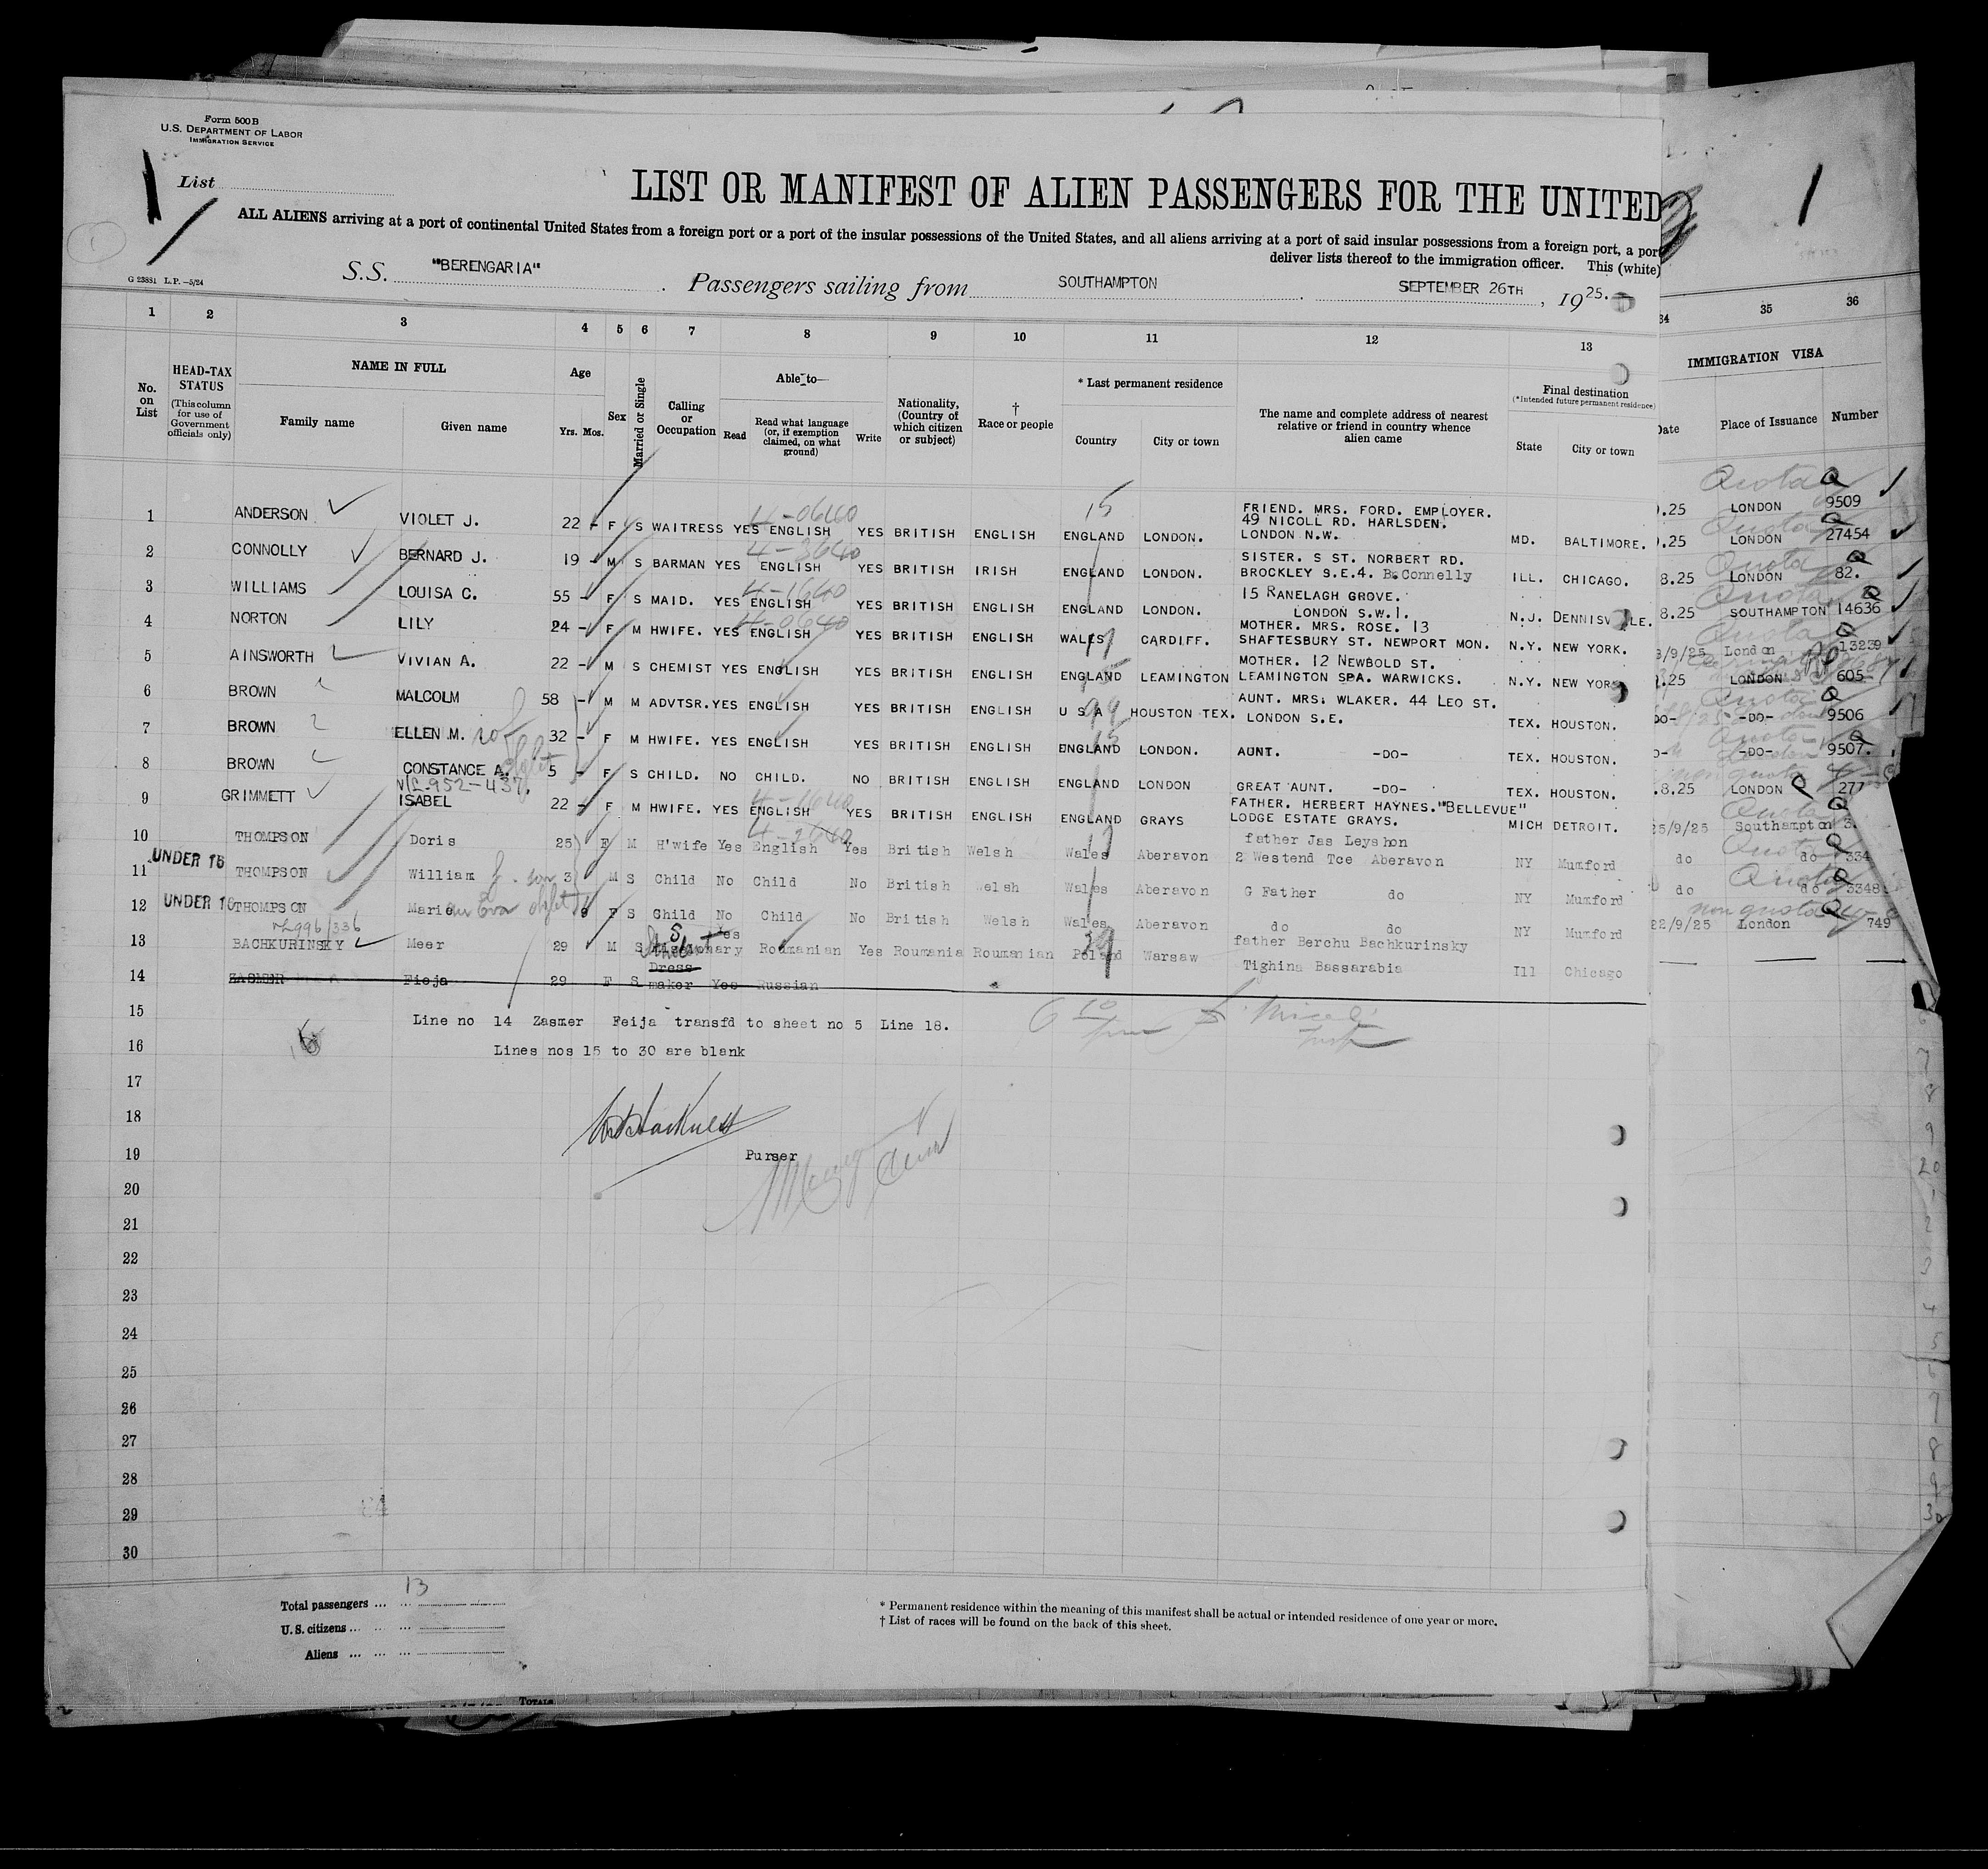 Form 500 B
U.S. DEPARTMENT OF LABOR
IMMIGRATION SERVICE
1
List
LIST OR MANIFEST OF ALIEN PASSENGERS FOR THE UNITED
ALL ALIENS arriving at a port of continental United States from a foreign port or a port of the insular possessions of the United States, and all aliens arriving at a port of said insular possessions from a foreign port, a por
deliver lists thereof to the immigration officer. This (white)
G 23881 L.P.—5/24
S.S. "BERENGARIA" Passengers sailing from SOUTHAMPTON SEPTEMBER 26TH, 1925.
1 2 3 4 5 6 7 8 9 10 11 12 13 34 35 36
No. on List
HEAD-TAX STATUS (This column for use of Government officials only)
NAME IN FULL
Family name Given name
Age
Yrs. Mos.
Sex
Married or Single
Calling or Occupation
Able to—
Read Read what language (or, if exemption claimed, on what ground) Write
Nationality, (Country of which citizen or subject)
† Race or people
* Last permanent residence
Country City or town
The name and complete address of nearest relative or friend in country whence alien came
Final destination
(*Intended future permanent residence)
State City or town
IMMIGRATION VISA
Date Place of Issuance Number
1 ANDERSON VIOLET J. 22 - F S WAITRESS YES ENGLISH YES BRITISH ENGLISH ENGLAND LONDON. FRIEND. MRS. FORD. EMPLOYER. 49 NICOLL RD. HARLSDEN. LONDON N.W. MD. BALTIMORE. .25 LONDON 9509
2 CONNOLLY BERNARD J. 19 - M S BARMAN YES ENGLISH YES BRITISH IRISH ENGLAND LONDON. SISTER. S ST. NORBERT RD. BROCKLEY S.E.4. B.Connelly ILL. CHICAGO. .25 LONDON 27454
3 WILLIAMS LOUISA C. 55 - F S MAID. YES ENGLISH YES BRITISH ENGLISH ENGLAND LONDON. 15 RANELAGH GROVE. LONDON S.W.1. N.J. 8.25 LONDON 82.
4 NORTON LILY 24 - F M HWIFE. YES ENGLISH YES BRITISH ENGLISH WALES CARDIFF. MOTHER. MRS. ROSE. 13 SHAFTESBURY ST. NEWPORT MON. N.Y. NEW YORK. 8.25 SOUTHAMPTON 14636
5 AINSWORTH VIVIAN A. 22 - M S CHEMIST YES ENGLISH YES BRITISH ENGLISH ENGLAND LEAMINGTON MOTHER. 12 NEWBOLD ST. LEAMINGTON SPA. WARWICKS. N.Y. NEW YORK /9/25 London 13239
6 BROWN MALCOLM 58 - M M ADVTSR. YES ENGLISH YES BRITISH ENGLISH U S A HOUSTON TEX. AUNT. MRS. WLAKER. 44 LEO ST. LONDON S.E. TEX. HOUSTON. .25 LONDON 605
7 BROWN ELLEN M. 32 - F M HWIFE. YES ENGLISH YES BRITISH ENGLISH ENGLAND LONDON. AUNT. -DO- TEX. HOUSTON. DO- -DO- 9506
8 BROWN CONSTANCE A. 5 - F S CHILD. NO CHILD. NO BRITISH ENGLISH ENGLAND LONDON GREAT AUNT. -DO- TEX. HOUSTON. -DO- 9507.
9 GRIMMETT ISABEL 22 - F M HWIFE. YES ENGLISH YES BRITISH ENGLISH ENGLAND GRAYS FATHER. HERBERT HAYNES. "BELLEVUE" LODGE ESTATE GRAYS. MICH DETROIT. .8.25 LONDON 277
10 THOMPSON Doris 25 F M H'wife Yes English Yes British Welsh Wales Aberavon father Jas Leyshon 2 Westend Tce Aberavon NY Mumford 25/9/25 Southampton 3.
UNDER 16
11 THOMPSON William 3 M S Child No Child No British Welsh Wales Aberavon G Father do NY Mumford do do 334
UNDER 16
12 THOMPSON Marie F S Child No Child No British Welsh Wales Aberavon do do NY Mumford do do 3348
13 BACHKURINSKY Meer 29 M S Yes Roumanian Yes Roumania Roumanian Poland Warsaw father Berchu Bachkurinsky Tighina Bassarabia Ill Chicago 22/9/25 London 749
14 ZASMER Fieja 29 F S Dress maker Yes Russian
15 Line no 14 Zasmer Feija transfd to sheet no 5 Line 18.
16 Lines nos 15 to 30 are blank
17
18
19 Purser
20
21
22
23
24
25
26
27
28
29
30
Total passengers ... 13
U.S. citizens ...
Aliens ...
* Permanent residence within the meaning of this manifest shall be actual or intended residence of one year or more.
† List of races will be found on the back of this sheet.
TOTALS